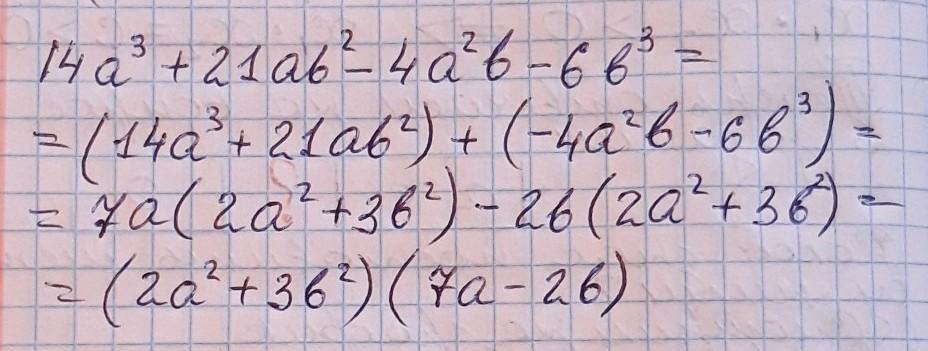 14a³ + 21ab² - 4a²b - 6b³ =
= (14a³ + 21ab²) + (-4a²b - 6b³) =
= 7a(2a² + 3b²) - 2b(2a² + 3b²) =
= (2a² + 3b²)(7a - 2b)